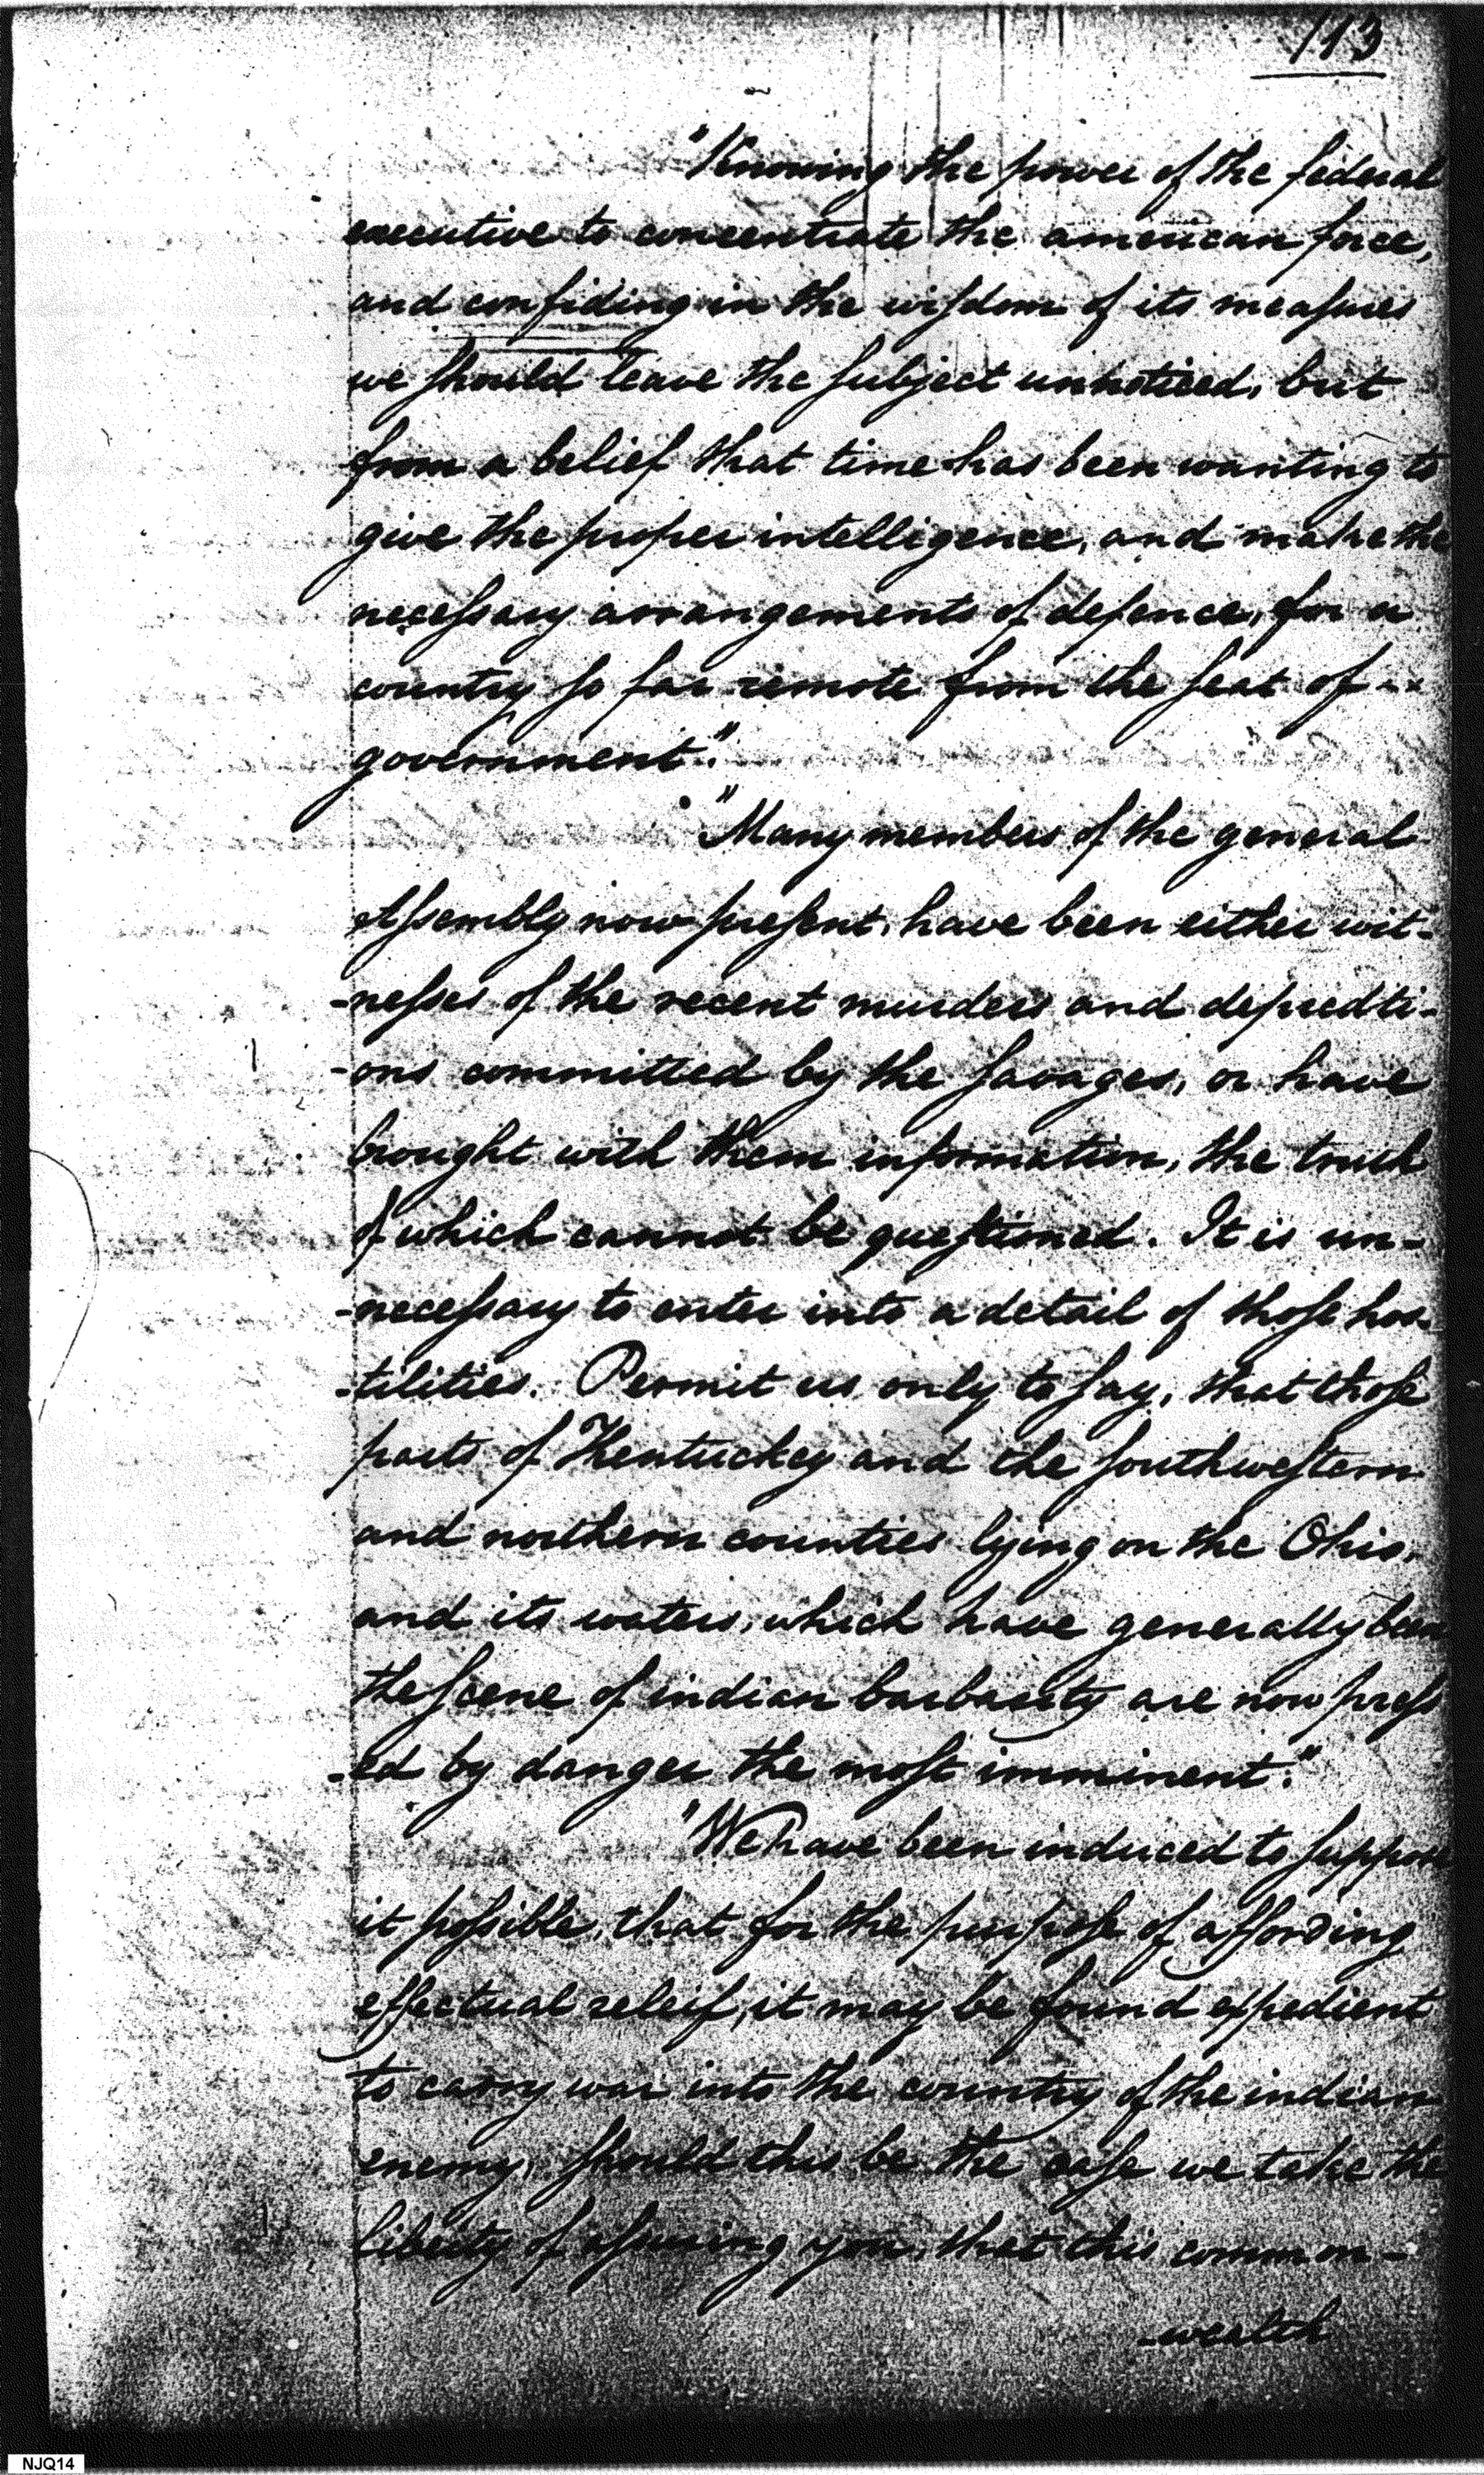 113
"Knowing the power of the federal
executive to concentrate the american force,
and confiding in the wisdom of its measures
we should leave the subject unnoticed, but
from a belief that time has been wanting to
give the proper intelligence, and make the
necessary arrangements of defence, for a
country so far remote from the seat of --
government."
"Many members of the general
Assembly now present, have been either wit-
-nesses of the recent murders and depredti-
-ons committed by the savages, or have
brought with them information, the truth
of which cannot be questioned. It is un-
-necessary to enter into a detail of those hos-
-tilities. Permit us only to say, that those
parts of Kentuckey and the southwestern
and northern counties lying on the Ohio,
and its waters, which have generally been
the scene of indian barbarity are now press
-ed by danger the most imminent."
"We have been induced to suppose
it possible, that for the purpose of affording
effectual releif, it may be found expedient
to carry war into the country of the indian
enemy, should this be the case we take the
liberty of assuring you, that this common-
-wealth
NJQ14